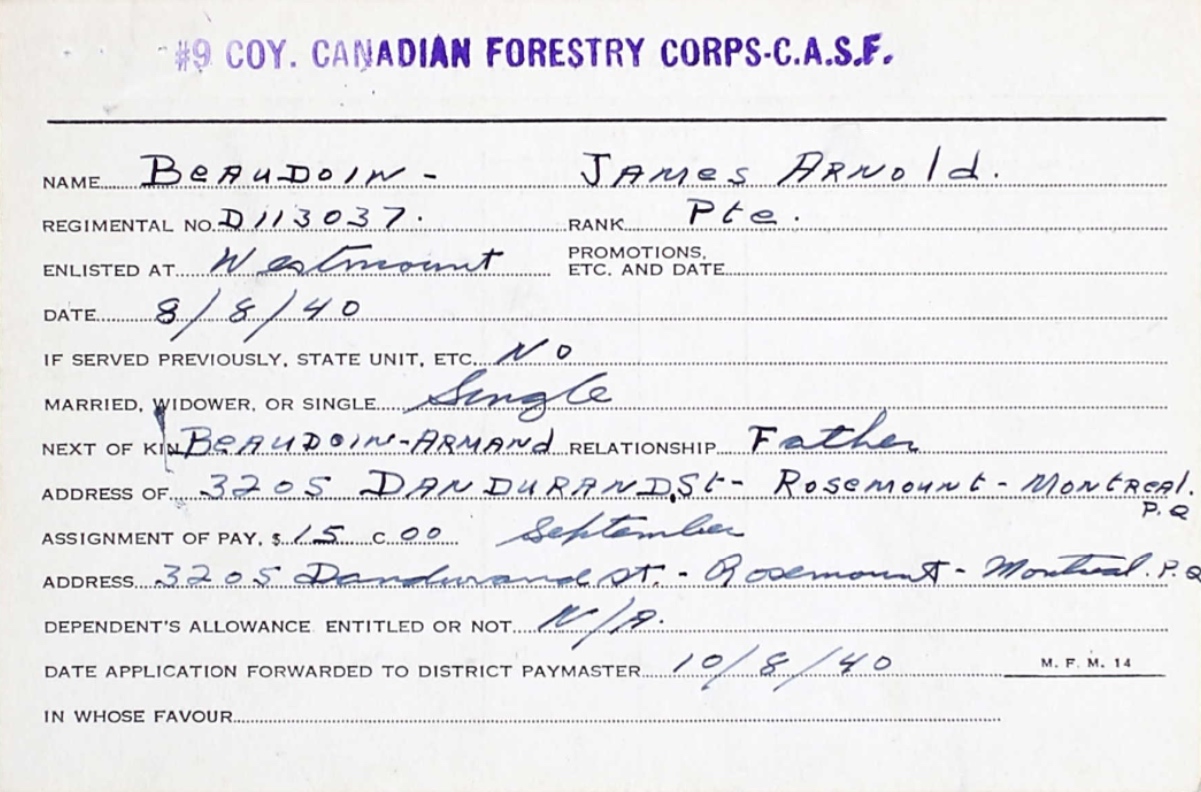 #9 COY. CANADIAN FORESTRY CORPS-C.A.S.F.
NAME BEAUDOIN - JAMES ARNOLD.
REGIMENTAL NO. D113037. RANK Pte.
ENLISTED AT Westmount PROMOTIONS, ETC. AND DATE
DATE 8/8/40
IF SERVED PREVIOUSLY, STATE UNIT, ETC. NO
MARRIED, WIDOWER, OR SINGLE Single
NEXT OF KIN BEAUDOIN-ARMAND RELATIONSHIP Father
ADDRESS OF 3205 DANDURAND, St - Rosemount - MONTREAL. P.Q
ASSIGNMENT OF PAY, $ 15 C 00 September
ADDRESS 3205 Dandurand St. - Rosemount - Montreal. P.Q
DEPENDENT'S ALLOWANCE ENTITLED OR NOT N/A.
DATE APPLICATION FORWARDED TO DISTRICT PAYMASTER 10/8/40 M. F. M. 14
IN WHOSE FAVOUR